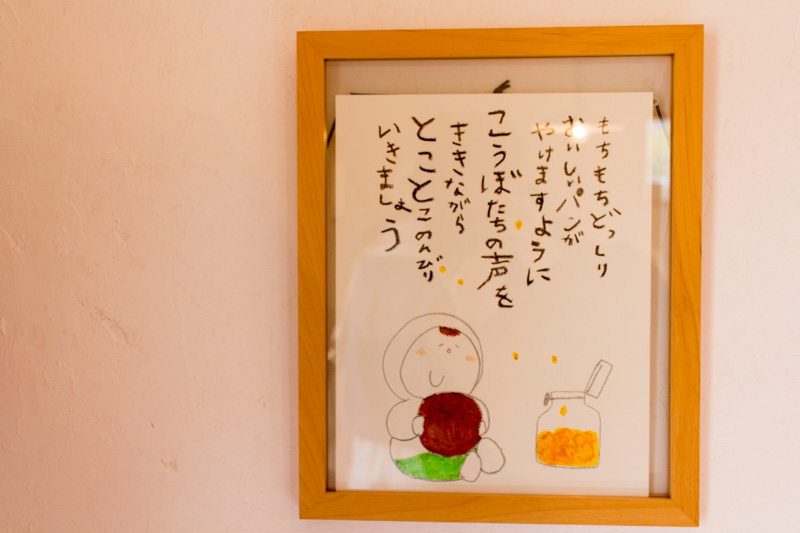 もちもちどっしり
おいしいパンが
やけますように
こうぼたちの声を
ききながら
とことこのんびり
いきましょう